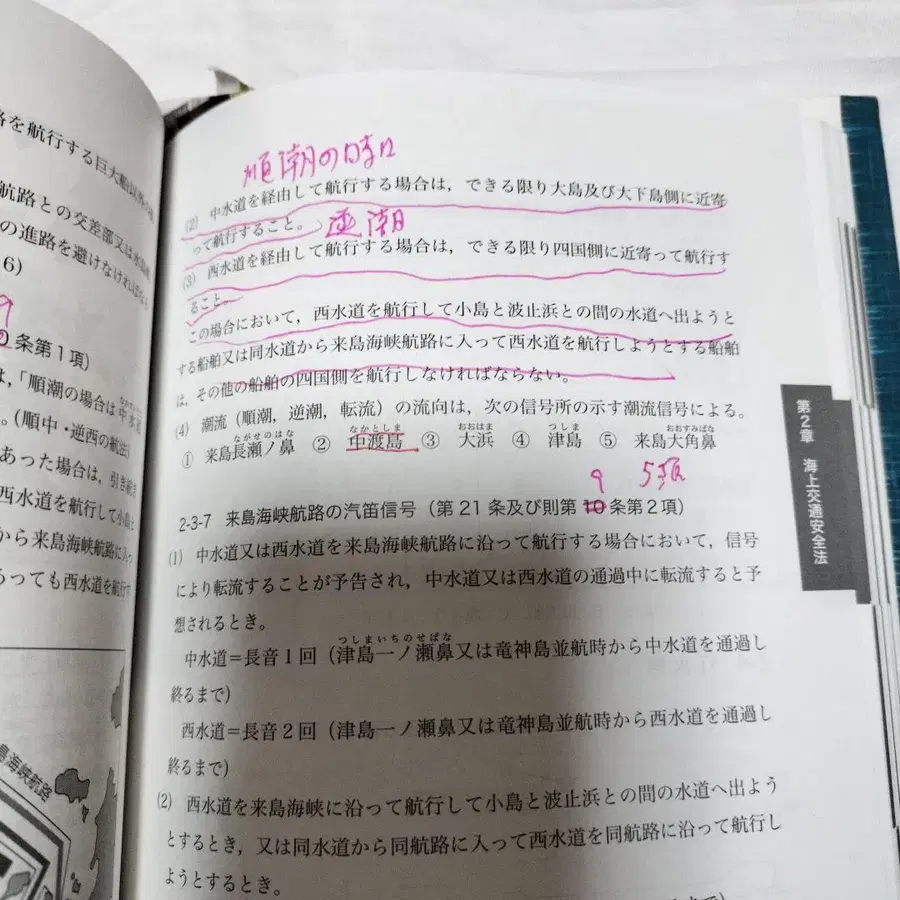 を航行する巨大船
航路との交差部又は
の進路を避けなければ
6)
9
条第1項)
は,「順潮の場合は中水道
。(順中・逆西の航法)
あった場合は,引き続き
西水道を航行して小島と
から来島海峡航路に入っ
あっても西水道を航行す
島海峡航路
順潮の時
(2) 中水道を経由して航行する場合は,できる限り大島及び大下島側に近寄
って航行すること。 逆潮
(3) 西水道を経由して航行する場合は,できる限り四国側に近寄って航行す
ること。
この場合において,西水道を航行して小島と波止浜との間の水道へ出ようと
する船舶又は同水道から来島海峡航路に入って西水道を航行しようとする船舶
は,その他の船舶の四国側を航行しなければならない。
(4) 潮流(順潮,逆潮,転流)の流向は,次の信号所の示す潮流信号による。
ながせのはな なかとしま おおはま つしま おおすみばな
① 来島長瀬ノ鼻 ② 中渡島 ③ 大浜 ④ 津島 ⑤ 来島大角鼻
9 5項
2-3-7 来島海峡航路の汽笛信号(第21条及び則第10条第2項)
(1) 中水道又は西水道を来島海峡航路に沿って航行する場合において,信号
により転流することが予告され,中水道又は西水道の通過中に転流すると予
想されるとき。
つしまいちのせばな
中水道=長音1回(津島一ノ瀬鼻又は竜神島並航時から中水道を通過し
終るまで)
西水道=長音2回(津島一ノ瀬鼻又は竜神島並航時から西水道を通過し
終るまで)
(2) 西水道を来島海峡に沿って航行して小島と波止浜との間の水道へ出よう
とするとき,又は同水道から同航路に入って西水道を同航路に沿って航行し
ようとするとき。
第2章 海上交通安全法